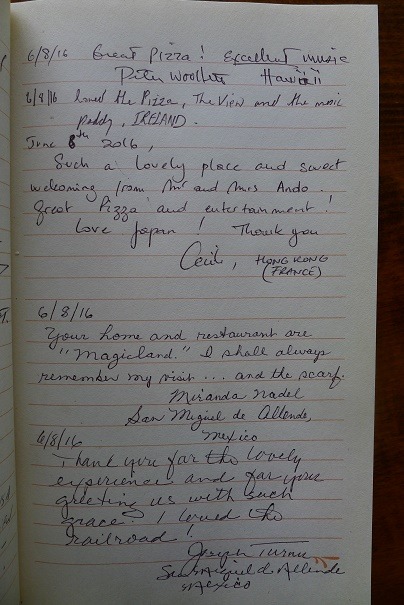 6/8/16 Great Pizza! Excellent music
Peter Hawaii
6/8/16 loved the Pizza, The View and the music
Paddy, IRELAND.
June 8th 2016,
Such a lovely place and sweet
welcoming from Mr and Mrs Ando.
Great Pizza and entertainment!
Love Japan! Thank you
Cecile, HONG KONG
(FRANCE)
6/8/16
Your home and restaurant are
"Magicland." I shall always
remember my visit ... and the scarf.
Miranda Nadel
San Miguel de Allende,
Mexico
6/8/16
Thank you for the lovely
experience and for your
greeting us with such
grace. I loved the
railroad!
Joseph Turner
San Miguel d. Allende
Mexico